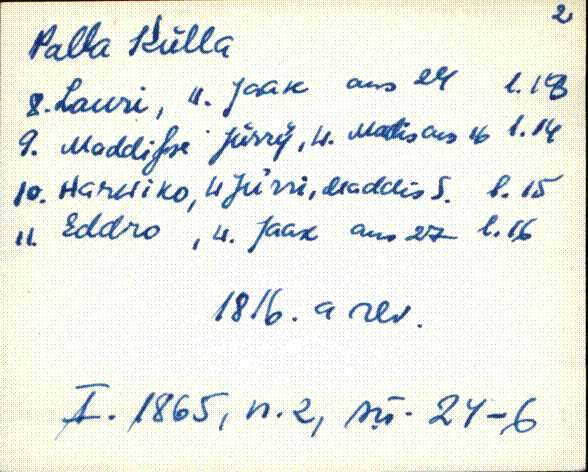 2
Palla Külla
8. Lauri, u. Jaak aus 24 l. 13
9. Maddisse Jürry, u. Mats aus 16 l. 14
10. Harkiko, u Jürri, Maddis S. l. 15
11. Eddro, u. Jaak aus 27 l. 16
1816. a rev.
I. 1865, n. 2, sü. 24-6